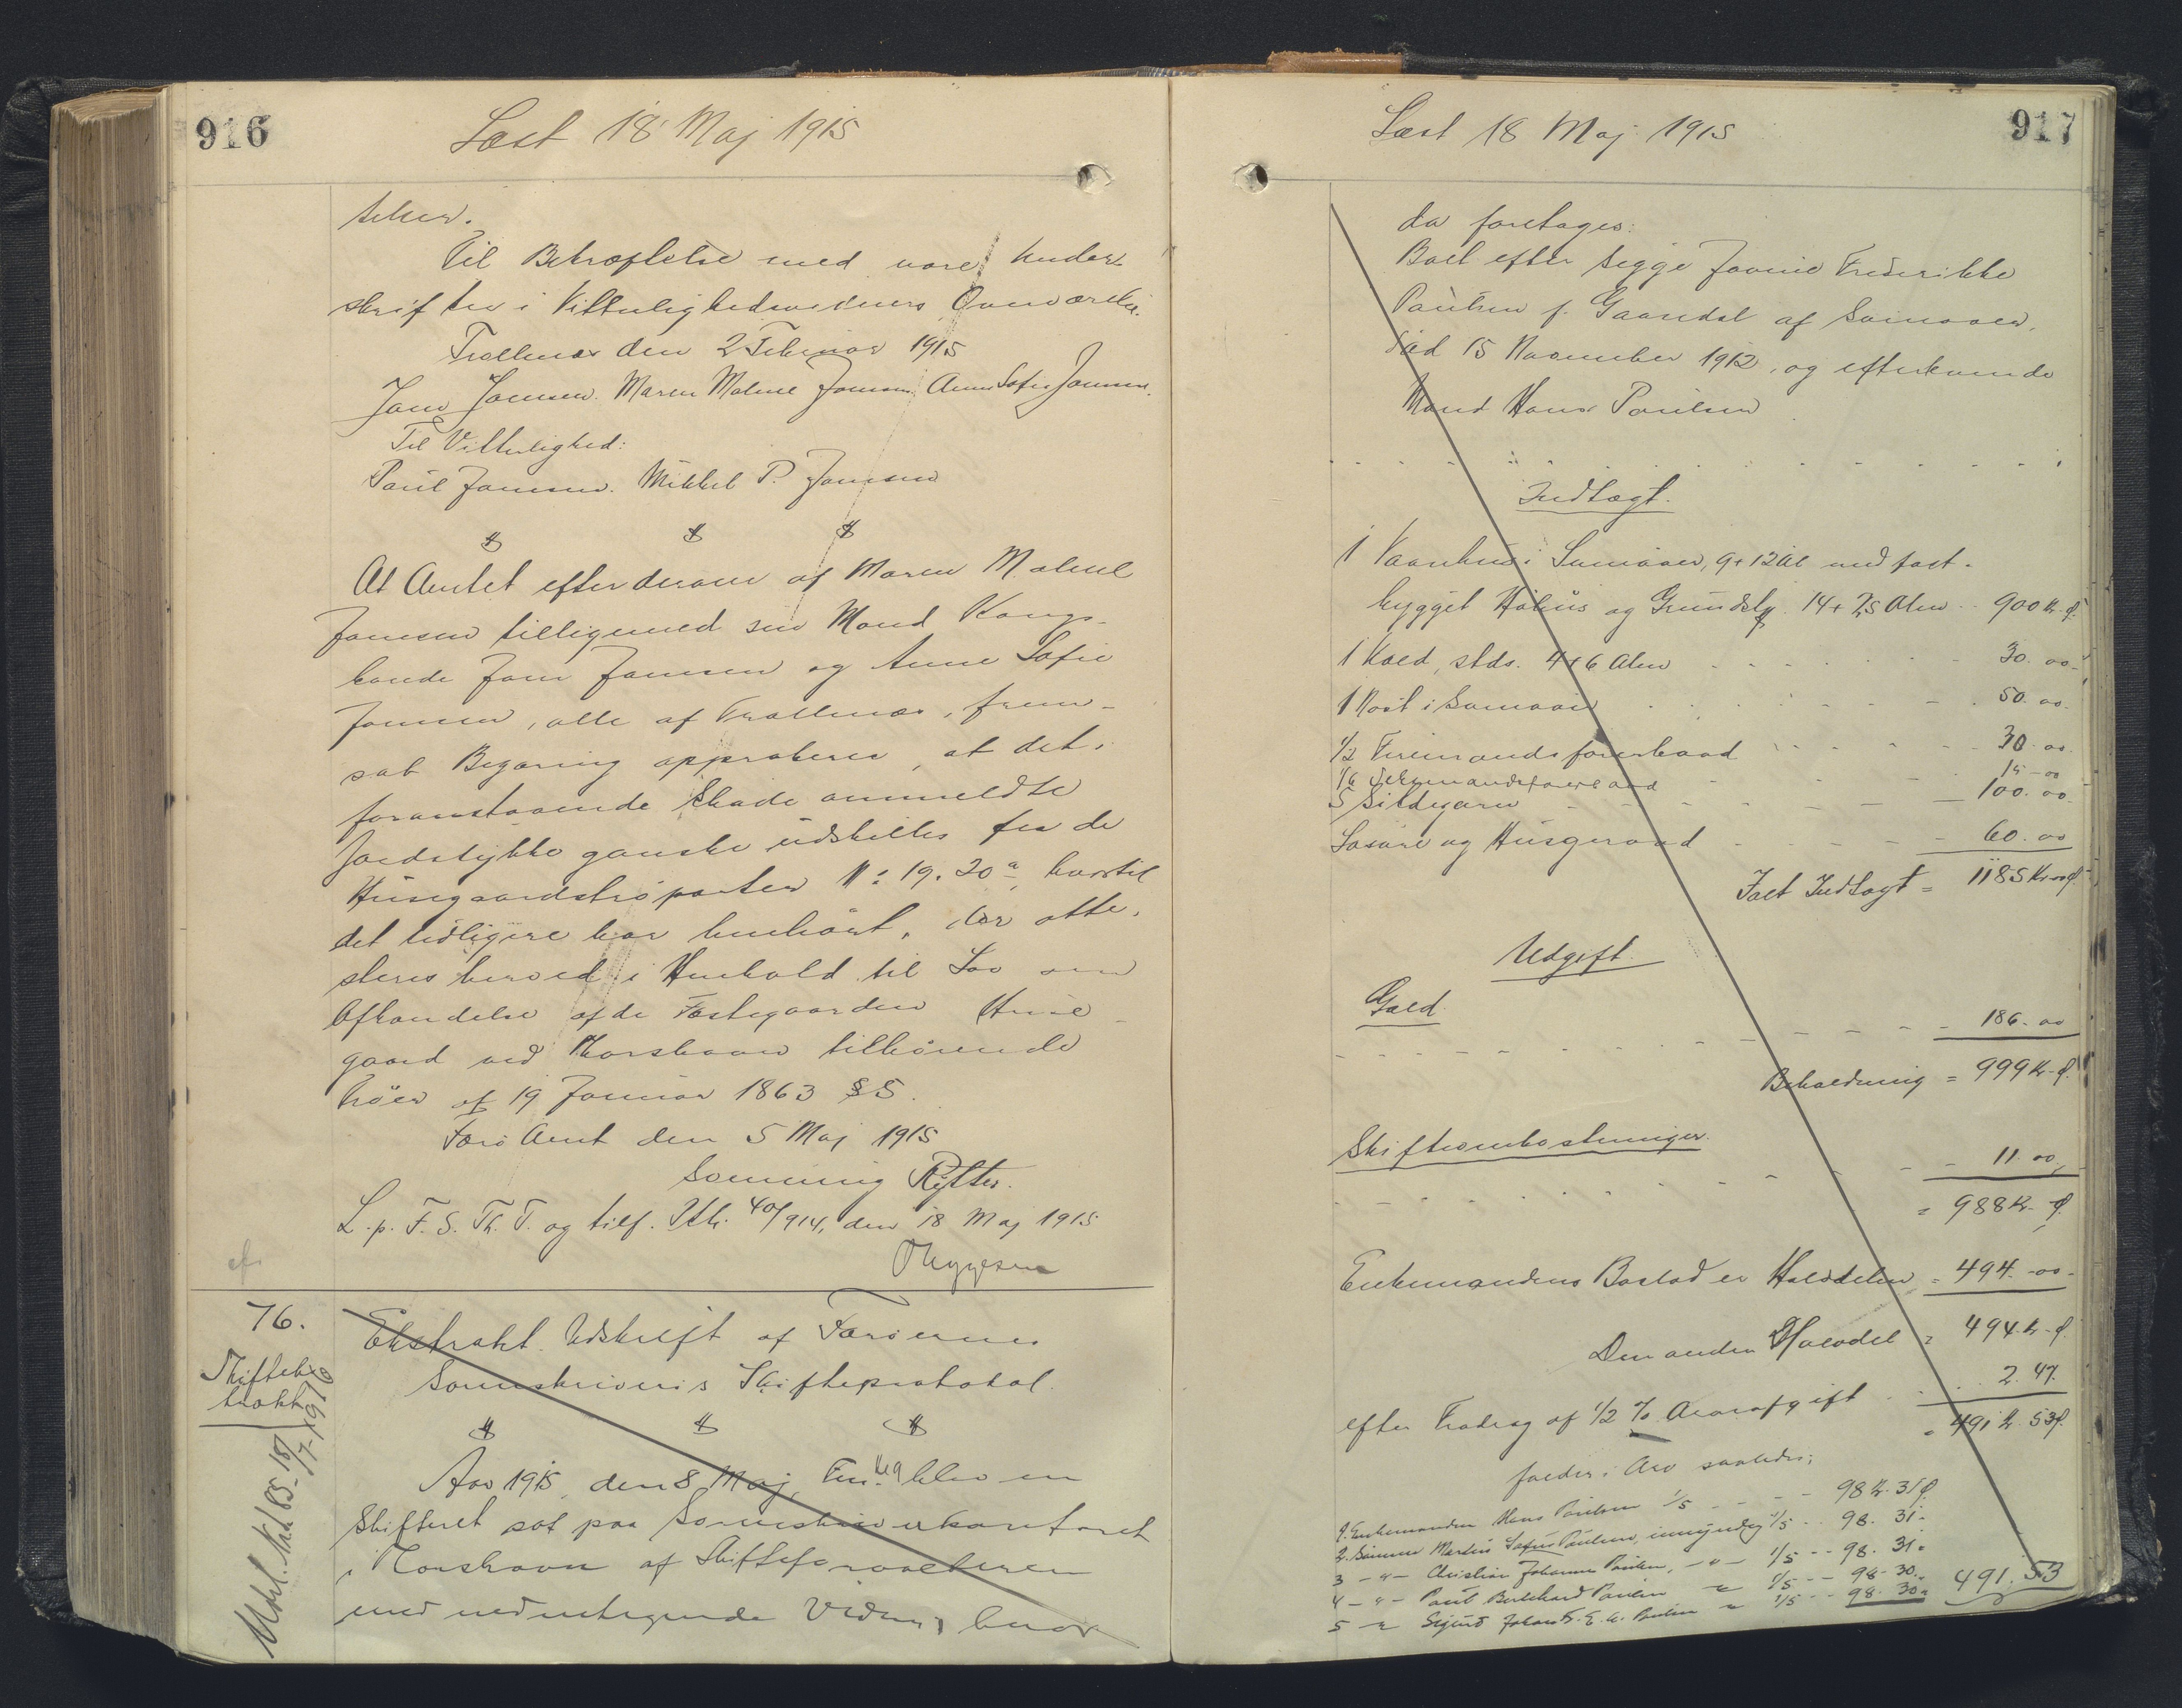 916
Læst 18 Maj 1915
teken.
Til Bekræftelse med vore Under-
skrifter i Vitterlighedsvidners Overværelse.
Trællenæs den 2 Februar 1915
Jans Joensen. Maren Malene Joensen Anna Sofie Joensen.
Til Vitterlighed:
Paul Joensen. Mikkel P. Joensen
At Amtet efter derom af Maren Malene
Joensen tilligemed sin Mand Kongs-
bonde Joen Joensen og Anne Sofie
Joensen, alle af Trællenæs, frem-
sat Begæring approberer, at det i
foranstaaende Skøde ommeldte
Jordstykke ganske udskilles fra de
Husegaardstrøparter No 19. 20a, hvortil
det tidligere har henhørt, der atte-
steres herved i Henhold til Lov om
Afhændelse af de Fæstegaarden Huse-
gaard ved Thorshavn tilhørende
Trøer af 19 Januar 1863 § 5.
Færø Amt den 5 Maj 1915
Svenning Rytter.
L. p. F. S. Th. T. og tilf. Ktk. 40/914, den 18 Maj 1915
Thygesen
76.
Skifteks
trakt
Udsl. No 85 - 18/7-1916
Ekstrakt Udskrift af Færøernes
Sorenskriveris Skifteprotokol.
Aar 1915, den 8 Maj, Em. Kl 9 blev en
Skifteret sat paa Sorenskriverkontoret
i Thorshavn af Skifteforvalteren
med nedentegnede Vidner, hvor
917
Læst 18 Maj 1915
da foretages:
Boet efter Sigge Jovine Frederikke
Poulsen f. Gaardal af Sumbøen,
død 15 November 1912, og efterlevende
Mand Hans Poulsen
Indtægt.
1 Vaanhus i Sumbøer, 9 + 12 Al med fast-
bygget Kohus og Grundstk. 14 + 25 Alen .. 900 Kr. Ø.
1 Hæld, stds. 4 + 6 Alen 30. oo.
1 Nøst i Sumbøer 50. oo.
1/2 Firemandsfarerbaad 30. oo.
1/6 Seksmandsfarerbaad 15 - oo
5 Sildegarn 100. oo.
Løsøre og Husgeraad 60. oo
Ialt Indtægt = 1185 Kr. oo Ø.
Udgift.
Gæld. 186. oo
Beholdning = 999 Kr. - Ø.
Skifteomkostninger. 11. oo,
= 988 Kr. - Ø.
Enkemandens Boslod er Halvdelen = 494. - oo -
Den anden Halvdel = 494 Kr. - Ø.
efter Fradrag af 1/2 % Arveafgift 2. 47.
= 491 Kr. 53 Ø.
falder i Arv saaledes:
1. Enkemanden Hans Poulsen 1/5 98 Kr. 31 Ø.
2. Sønnen Martin Sofus Poulsen, umyndig 1/5 - - 98. 31 -
3 - " - Christian Johannes Poulsen, - " - 1/5 - - 98. 31 -
4 - " - Poul Berlhard Poulsen 1/5 - - 98. 30.
5 - " Sigurd Johan D. E. A. Poulsen 1/5 - - 98. 30. 491. 53